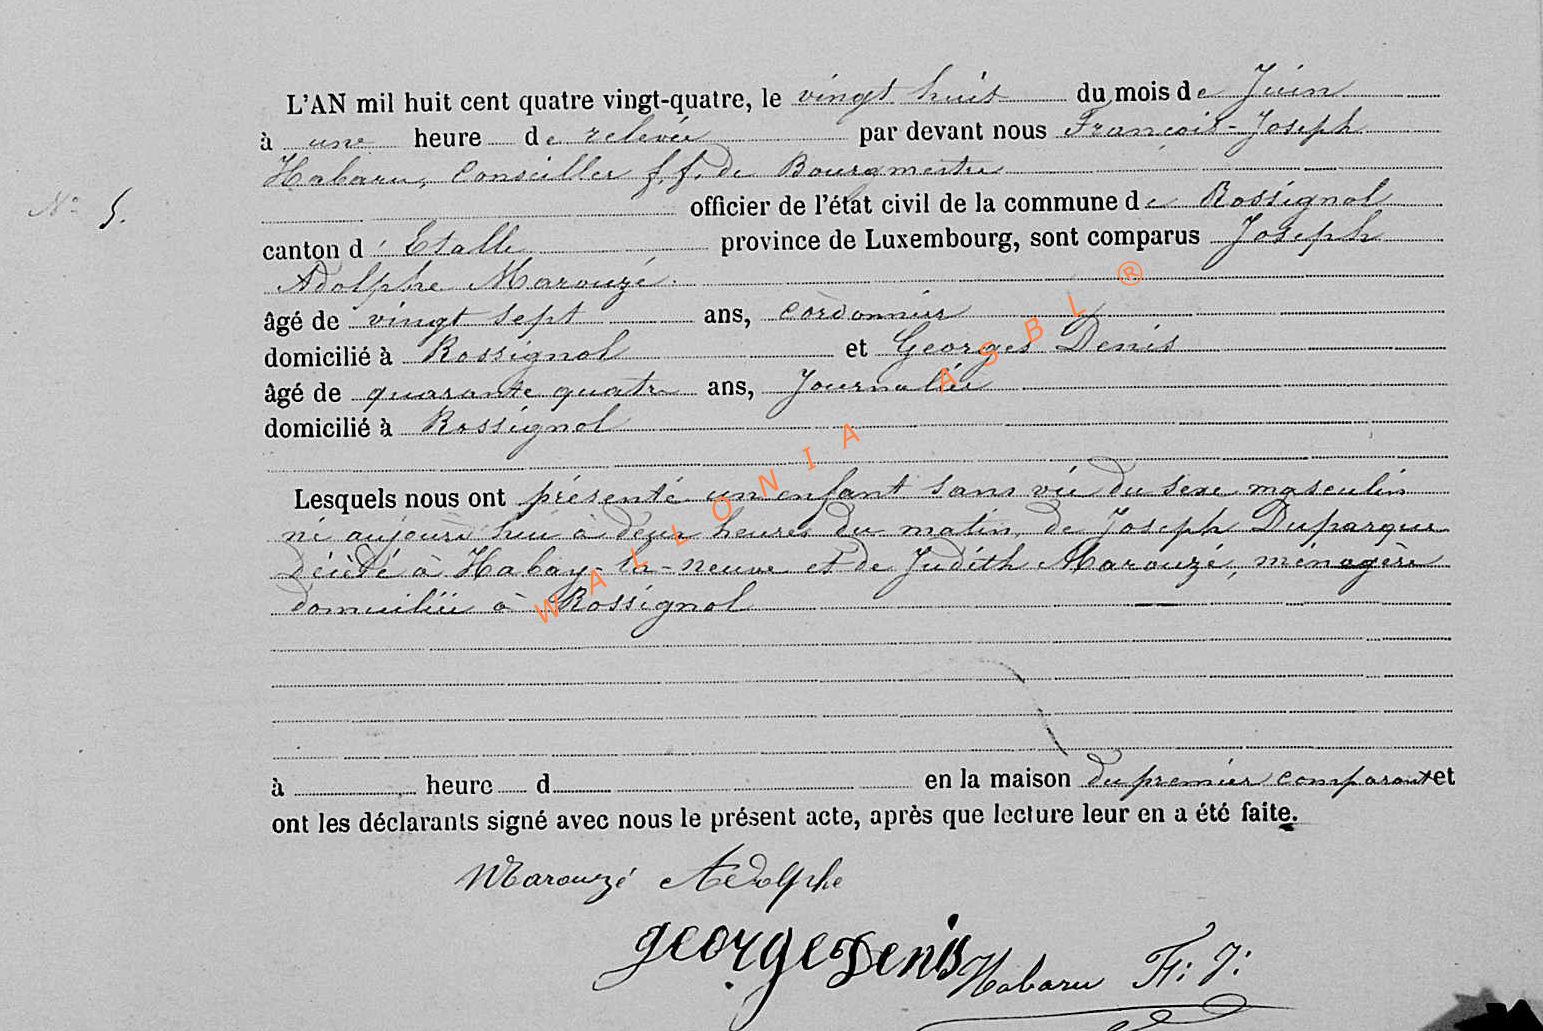 L'AN mil huit cent quatre vingt-quatre, le vingt huit du mois de Juin
à une heure de relevée par devant nous François-Joseph
Habaru, Conseiller f.f. de Bourgmestre
N° 5.
officier de l'état civil de la commune de Rossignol
canton d' Etalle province de Luxembourg, sont comparus Joseph
Adolphe Marouzé.
âgé de vingt sept ans, cordonnier
domicilié à Rossignol et Georges Denis
âgé de quarante quatre ans, Journalier
domicilié à Rossignol
Lesquels nous ont présenté un enfant sans vie du sexe masculin
né aujourd'hui à deux heures du matin, de Joseph Duparque
décédé à Habay-la-neuve et de Judith Marouzé, ménagère
domiciliée à Rossignol
à heure d en la maison du premier comparant et
ont les déclarants signé avec nous le présent acte, après que lecture leur en a été faite.
Marouzé Adolphe
george Denis Habaru F: J:
WALLONIA ASBL ®